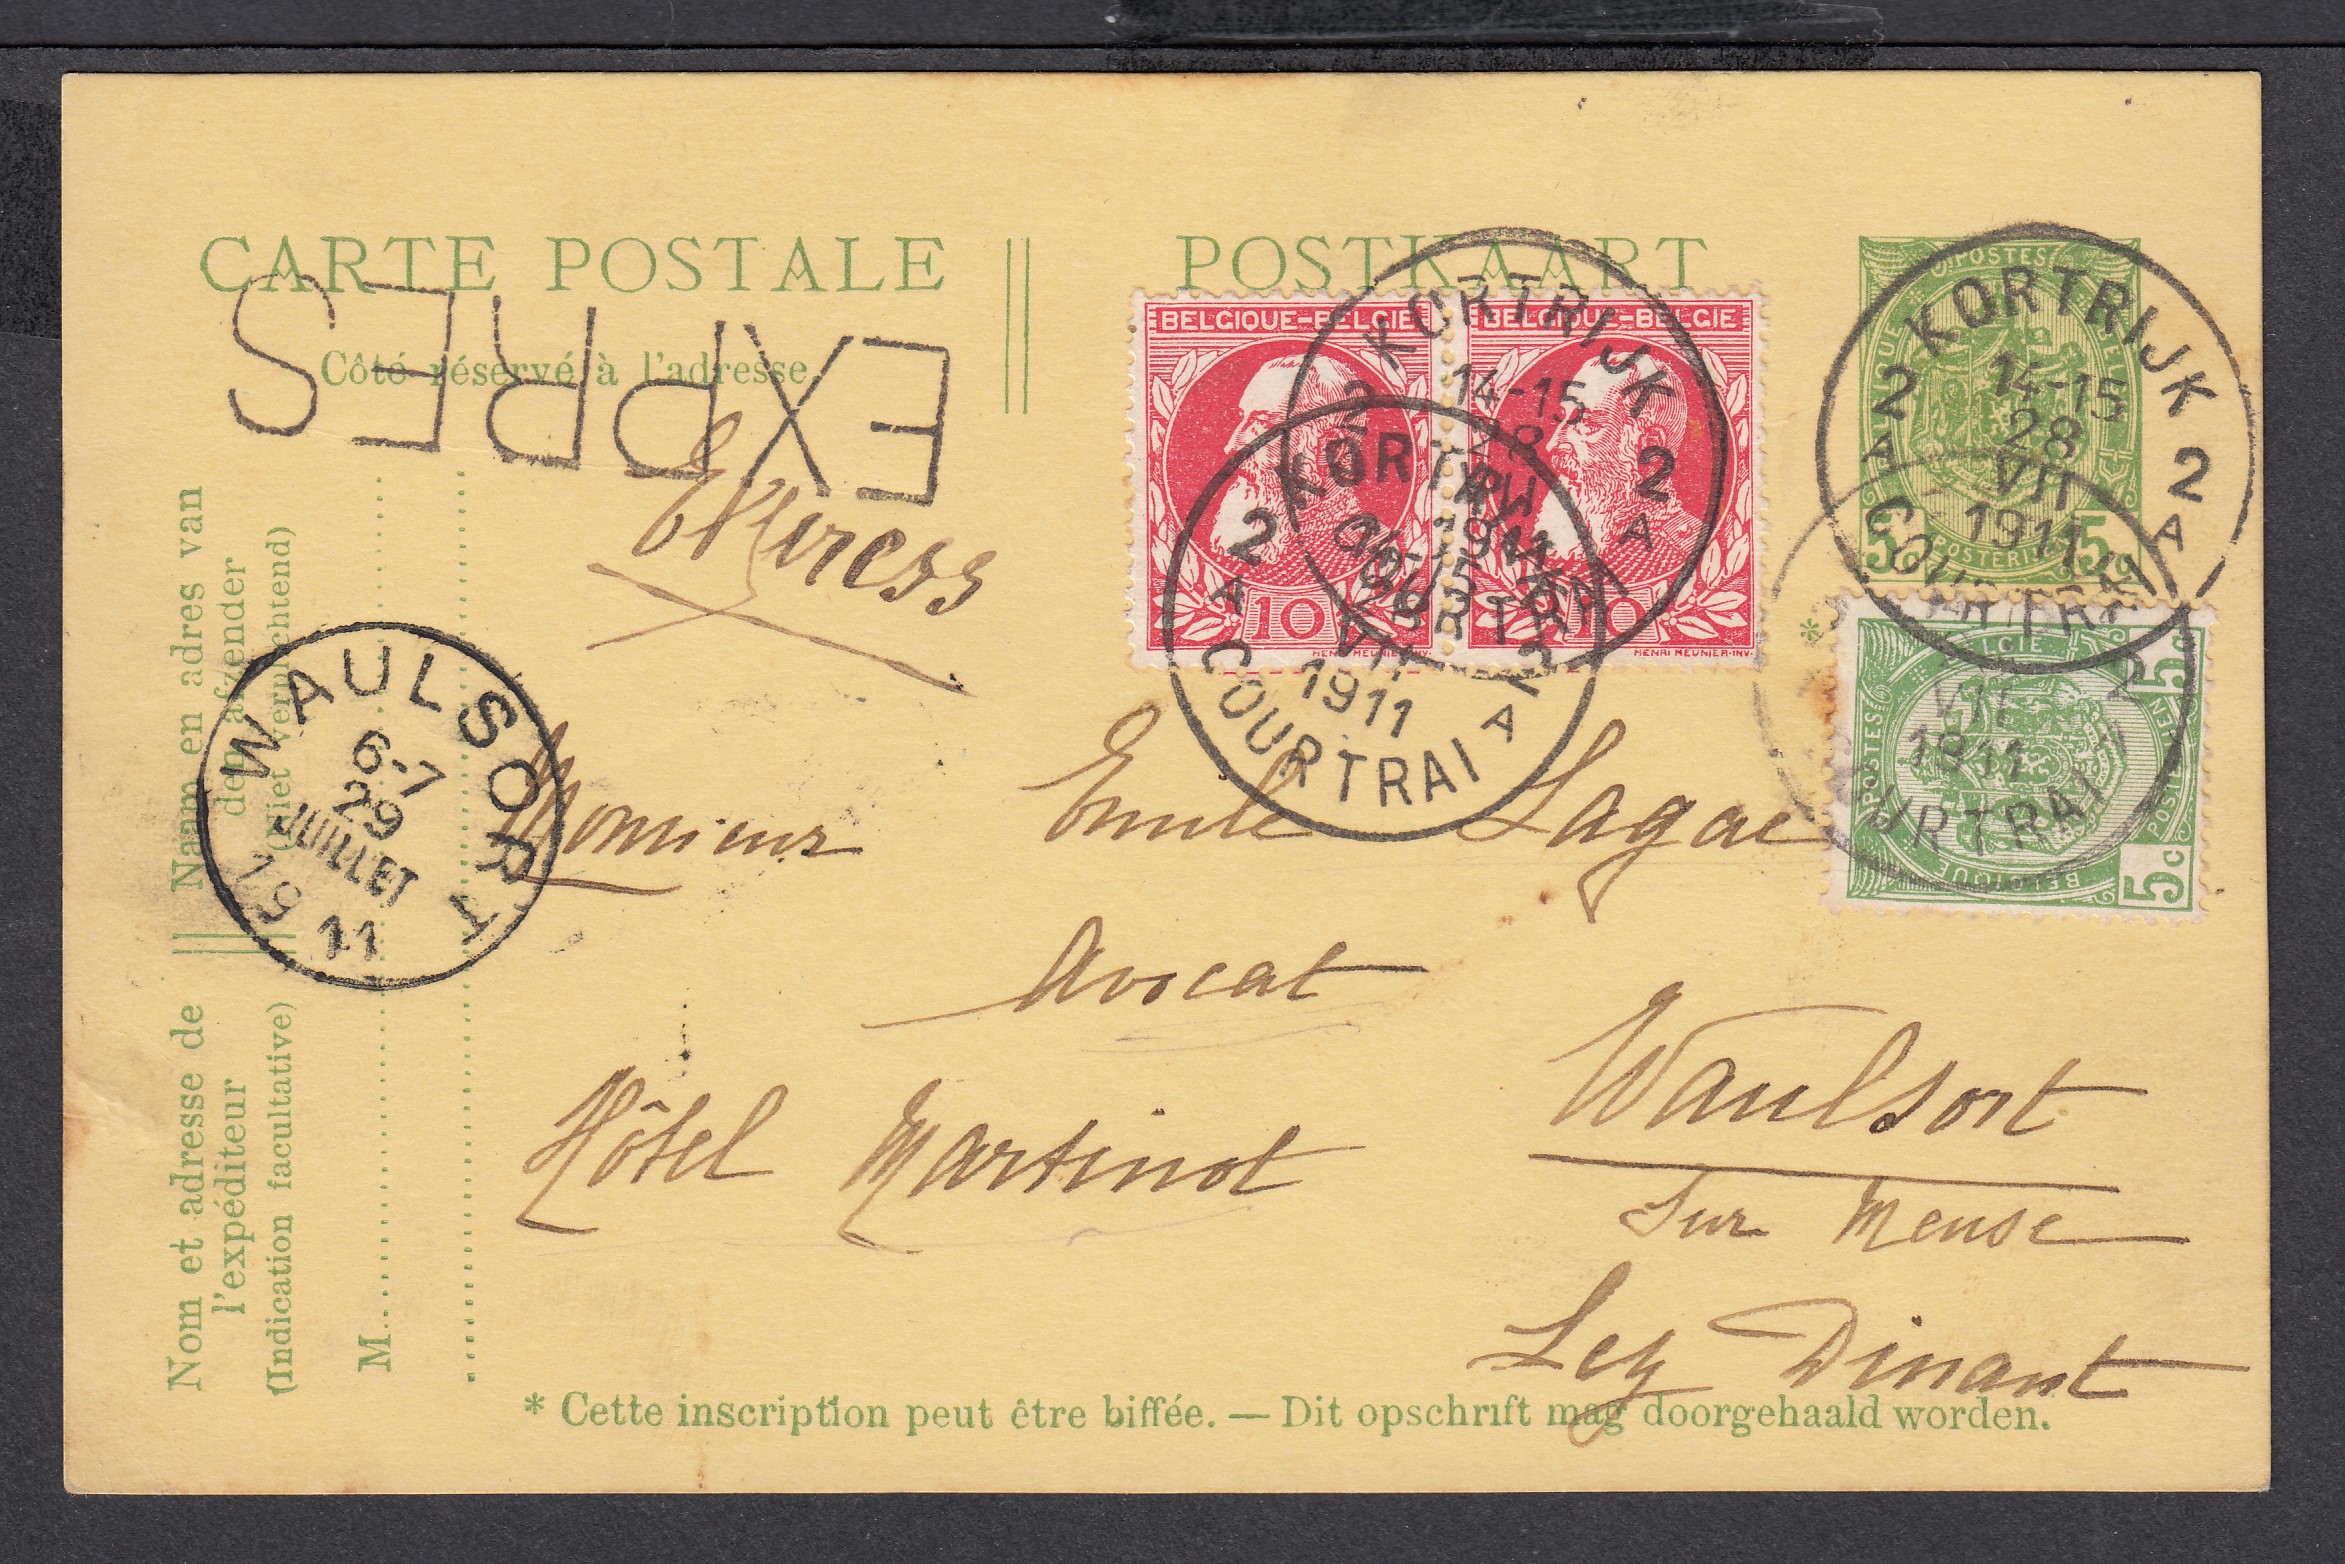 CARTE POSTALE
POSTKAART
Côté réservé à l'adresse.
EXPRES
Express
BELGIQUE-BELGIE
10
HENRI MEUNIER-INV.
BELGIQUE-BELGIE
10
HENRI MEUNIER-INV.
POSTES
5c 5c
KORTRIJK
14-15
28
VII
1911
2 A 2 A
COURTRAI
KORTRIJK
14-15
28
VII
1911
2 2 A
COURTRAI
KORTRIJK
28
VII
1911
2 A 2 A
COURTRAI
BELGIE
POSTES
POSTERIJEN
BELGIQUE
5c 5c
VII
1911
2
COURTRAI
WAULSORT
6-7
29
JUILLET
19 11
Naam en adres van
den afzender
(Niet verplichtend)
Nom et adresse de
l'expéditeur
(Indication facultative)
M
Monsieur Emile Lagae
Avocat
Hôtel Martinot Waulsort
Sur Meuse
Lez Dinant
* Cette inscription peut être biffée. — Dit opschrift mag doorgehaald worden.